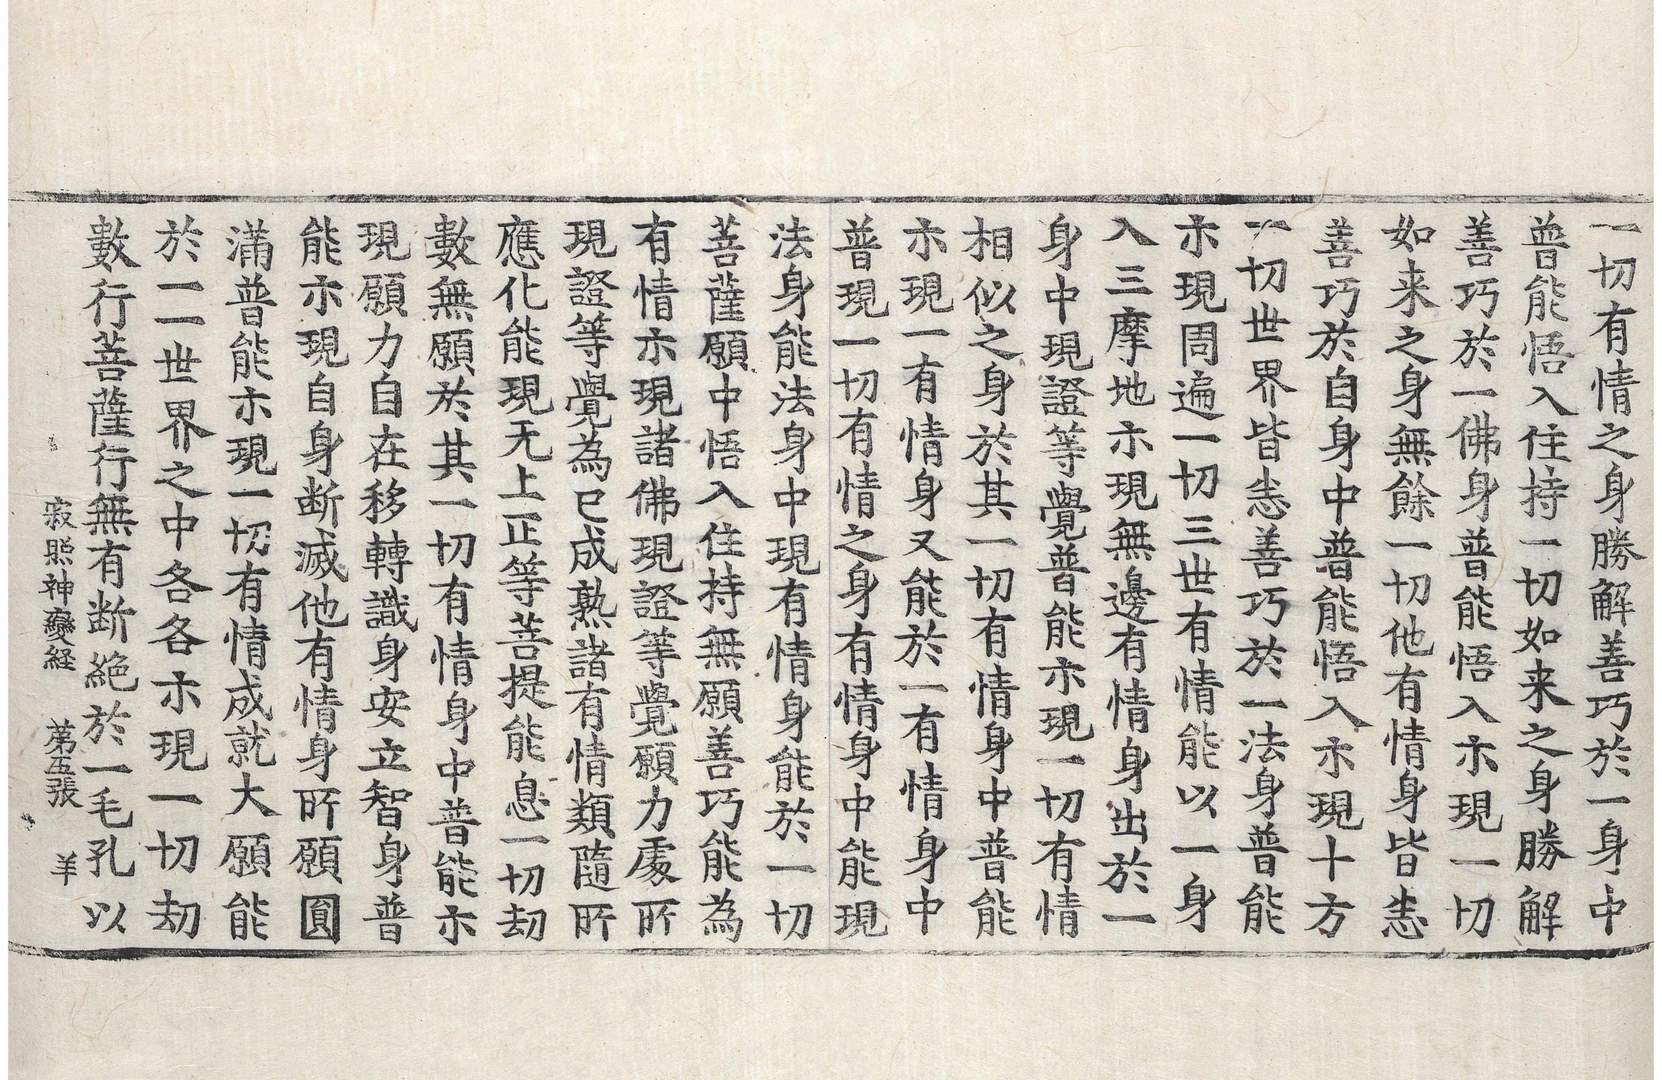 一切有情之身勝解善巧於一身中
普能悟入住持一切如来之身勝解
善巧於一佛身普能悟入示現一切
如来之身無餘一切他有情身皆悉
善巧於自身中普能悟入示現十方
一切世界皆悉善巧於一法身普能
示現周遍一切三世有情能以一身
入三摩地示現無邊有情身出於一
身中現證等覺普能示現一切有情
相似之身於其一切有情身中普能
示現一有情身又能於一有情身中
普現一切有情之身有情身中能現
法身能法身中現有情身能於一切
菩薩願中悟入住持無願善巧能為
有情示現諸佛現證等覺願力處所
現證等覺為已成熟諸有情類隨所
應化能現无上正等菩提能息一切劫
數無願於其一切有情身中普能示
現願力自在移轉識身安立智身普
能示現自身断滅他有情身所願圓
滿普能示現一切有情成就大願能
於一一世界之中各各示現一切劫
數行菩薩行無有断絕於一毛孔以
寂照神變経 第五張 羊